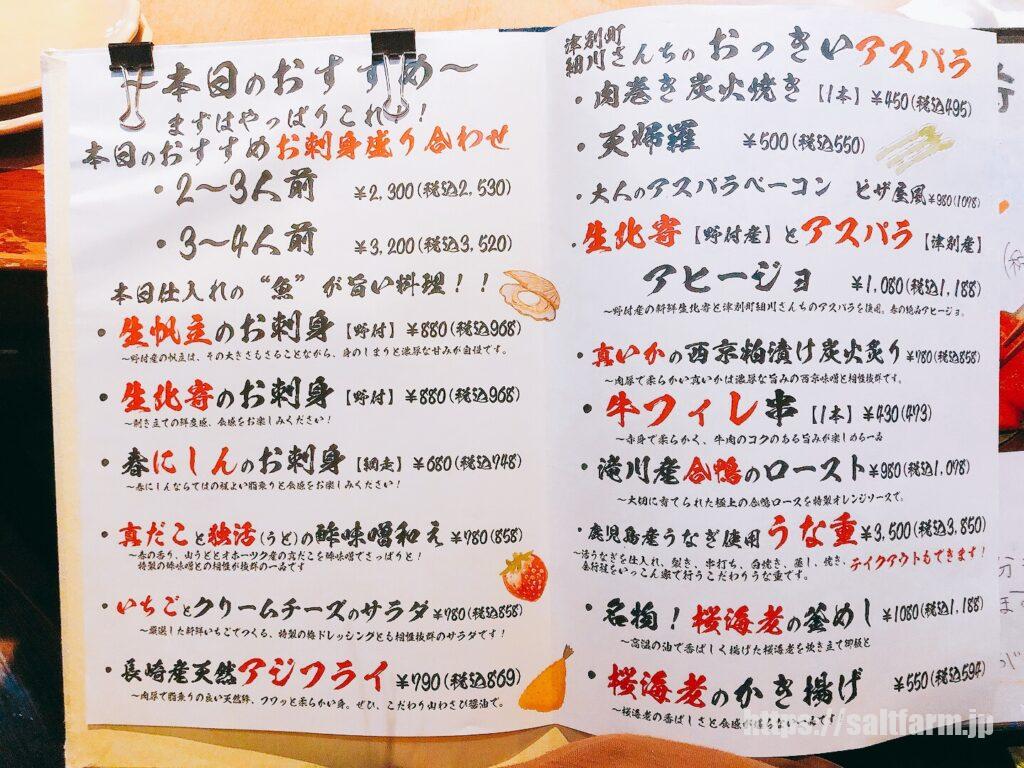 ～本日のおすすめ～
まずはやっぱりこれ！
本日のおすすめお刺身盛り合わせ
・2～3人前 ￥2,300(税込2,530)
・3～4人前 ￥3,200(税込3,520)
本日仕入れの“魚”が旨い料理！！
・生帆立のお刺身【野付】￥880(税込968)
～野付産の帆立は、その大きさもさることながら、身のしまりと濃厚な甘みが自慢です。
・生北寄のお刺身【野付】￥880(税込968)
～剥き立ての鮮度感、食感をお楽しみください！
・春にしんのお刺身【網走】￥680(税込748)
～春にしんならではの程よい脂乗りと食感をお楽しみください！
・真だこと独活(うど)の酢味噌和え ￥780(858)
～春の香り、山うどとオホーツク産の真だこを酢味噌でさっぱりと！
特製の酢味噌との相性が抜群の一品です
・いちごとクリームチーズのサラダ ￥780(税込858)
～厳選した新鮮いちごでつくる、特製の梅ドレッシングとも相性抜群のサラダです！
・長崎産天然アジフライ ￥790(税込869)
～肉厚で脂乗りの良い天然鯵、フワッと柔らかい身。ぜひ、こだわり山わさび醤油で。
津別町
細川さんちのおっきいアスパラ
・肉巻き炭火焼き【1本】￥450(税込495)
・天婦羅 ￥500(税込550)
・大人のアスパラベーコン ピザ屋風￥980(1078)
・生北寄【野付産】とアスパラ【津別産】
アヒージョ ￥1,080(税込1,188)
～野付産の新鮮生北寄と津別町細川さんちのアスパラを使用。春の絶品アヒージョ。
・真いかの西京粕漬け炭火炙り￥780(税込858)
～肉厚で柔らかい真いかは濃厚な旨みの西京味噌と相性抜群です。
・牛フィレ串【1本】￥430(473)
～赤身で柔らかく、牛肉のコクのある旨みが楽しめる一品
・滝川産合鴨のロースト￥980(税込1,078)
～大切に育てられた極上の合鴨ロースを特製オレンジソースで。
・鹿児島産うなぎ使用うな重￥3,500(税込3,850)
～活うなぎを仕入れ、裂き、串打ち、白焼き、蒸し、焼き、テイクアウトもできます！
全行程をいっこん家で行うこだわりうな重です。
・名物！桜海老の釜めし￥1080(税込1,188)
～高温の油で香ばしく揚げた桜海老を炊き立て御飯と
・桜海老のかき揚げ ￥550(税込594)
～桜海老の香ばしさと食感がたまらない一品です
https://saltfarm.jp